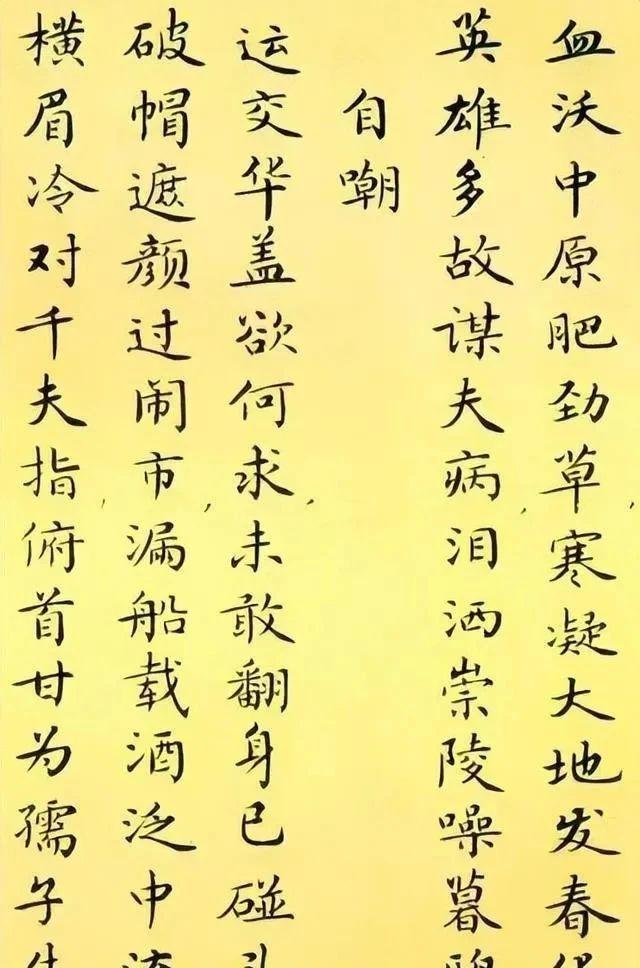 血沃中原肥劲草，寒凝大地发春
英雄多故谋夫病，泪洒崇陵噪暮
自嘲
运交华盖欲何求，未敢翻身已碰
破帽遮颜过闹市，漏船载酒泛中
横眉冷对千夫指，俯首甘为孺子